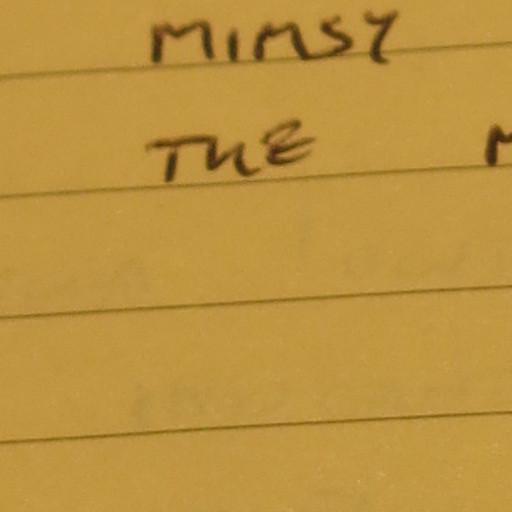 MIMSY
THE